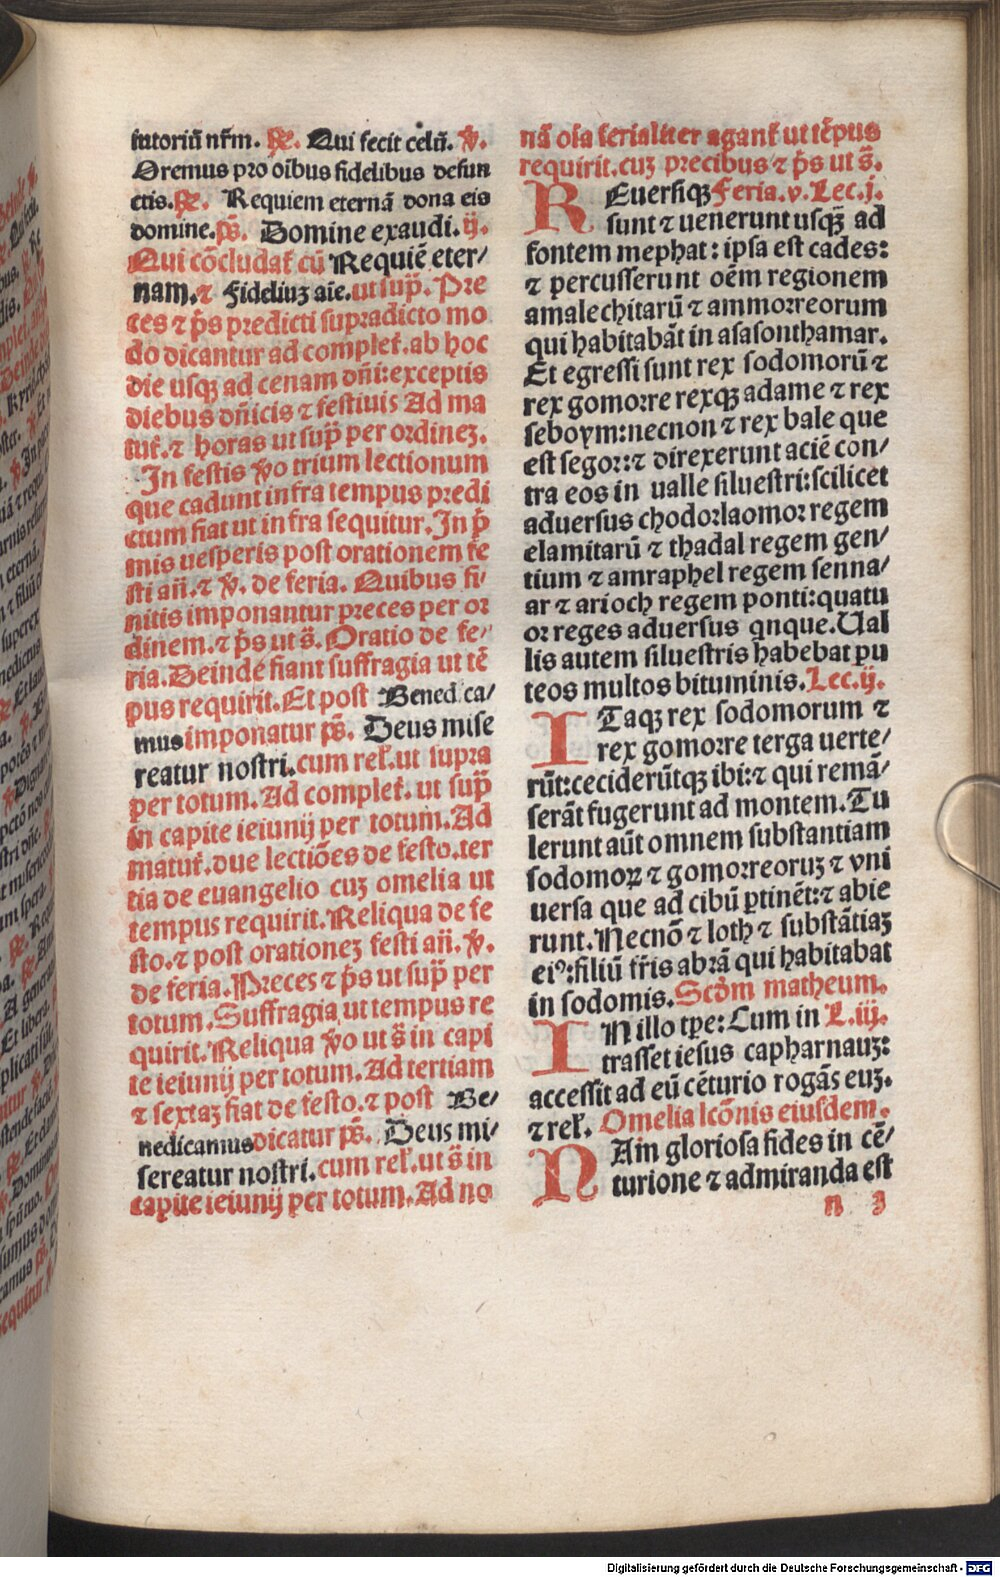 iutoriū nr̄m. ℟. Qui fecit celū. ℣.
Oremus pro oībus fidelibus defun
ctis. ℟. Requiem eternā dona eis
domine. p̄s. Domine exaudi. ij.
Qui cōcludat᷑ cū Requiē eter/
nam. ⁊ Fideliuʒ aīe. ut sup̄. Pre
ces ⁊ p̄s predicti supradicto mo
do dicantur ad complet᷑. ab hoc
die usqʒ ad cenam dn̄i: exceptis
diebus dn̄icis ⁊ festiuis Ad ma
tut᷑. ⁊ horas ut sup̄ per ordineʒ.
In festis v̄o trium lectionum
que cadunt infra tempus predi
ctum fiat ut infra sequitur. In p̄
mis uesperis post orationem fe
sti an̄. ⁊ ℣. de feria. Quibus fi/
nitis imponantur preces per or
dinem. ⁊ p̄s ut s̄. Oratio de fe/
ria. Deinde fiant suffragia ut tē
pus requirit. Et post Bened̄ ca/
mus imponatur p̄s. Deus mise
reatur nostri. cum rel᷑. ut supra
per totum. Ad complet᷑. ut sup̄
in capite ieiunij per totum. Ad
matut᷑. due lectiōes de festo. ter
tia de euangelio cuʒ omelia ut
tempus requirit. Reliqua de fe
sto. ⁊ post orationeʒ festi an̄. ℣.
de feria. Preces ⁊ p̄s ut sup̄ per
totum. Suffragia ut tempus re
quirit. Reliqua v̄o ut s̄ in capi
te ieiunij per totum. Ad tertiam
⁊ sextaʒ fiat de festo. ⁊ post Be/
nedicamus dicatur p̄s. Deus mi/
sereatur nostri. cum rel᷑. ut s̄ in
capite ieiunij per totum. Ad no
nā oīa ferialiter agant᷑ ut tēpus
requirit. cuʒ precibus ⁊ p̄s ut s̄.
REuersiqʒ Feria. v. Lec. j.
sunt ⁊ uenerunt usqʒ ad
fontem mephat: ipsa est cades:
⁊ percusserunt oēm regionem
amalechitarū ⁊ ammorreorum
qui habitabāt in asasonthamar.
Et egressi sunt rex sodomorū ⁊
rex gomorre rexqʒ adame ⁊ rex
seboym: necnon ⁊ rex bale que
est segor: ⁊ direxerunt aciē con/
tra eos in ualle siluestri: scilicet
aduersus chodorlaomor regem
elamitarū ⁊ thadal regem gen/
tium ⁊ amraphel regem senna/
ar ⁊ arioch regem ponti: quatu
or reges aduersus qnque. Ual
lis autem siluestris habebat pu
teos multos bituminis. Lec. ij.
ITaqʒ rex sodomorum ⁊
rex gomorre terga uerte/
rūt: ceciderūtqʒ ibi: ⁊ qui remā/
serāt fugerunt ad montem. Tu
lerunt aūt omnem substantiam
sodomoꝝ ⁊ gomorreoruʒ ⁊ vni
uersa que ad cibū ꝑtinēt: ⁊ abie
runt. Necnō ⁊ loth ⁊ substātiaʒ
eiꝰ: filiū fr̄is abrā qui habitabat
in sodomis. Scd̄m matheum.
IN illo tꝑe: Cum in L. iij.
trasset iesus capharnauʒ:
accessit ad eū cēturio rogās euʒ.
⁊ rel᷑. Omelia lcōnis eiusdem.
NAm gloriosa fides in cē/
turione ⁊ admiranda est
n 3
Digitalisierung gefördert durch die Deutsche Forschungsgemeinschaft - DFG